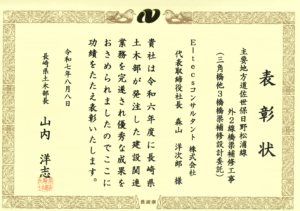 表彰状
主要地方道佐世保日野松浦線
外2線橋梁補修工事
(三角橋他3橋橋梁補修設計委託)
Eitecsコンサルタント 株式会社
代表取締役社長 森山 洋次郎 様
貴社は令和六年度に長崎県
土木部が発注した建設関連
業務を完遂され優秀な成果を
おさめられましたのでここに
功績をたたえ表彰いたします。
令和七年八月八日
長崎県土木部長
山内 洋志